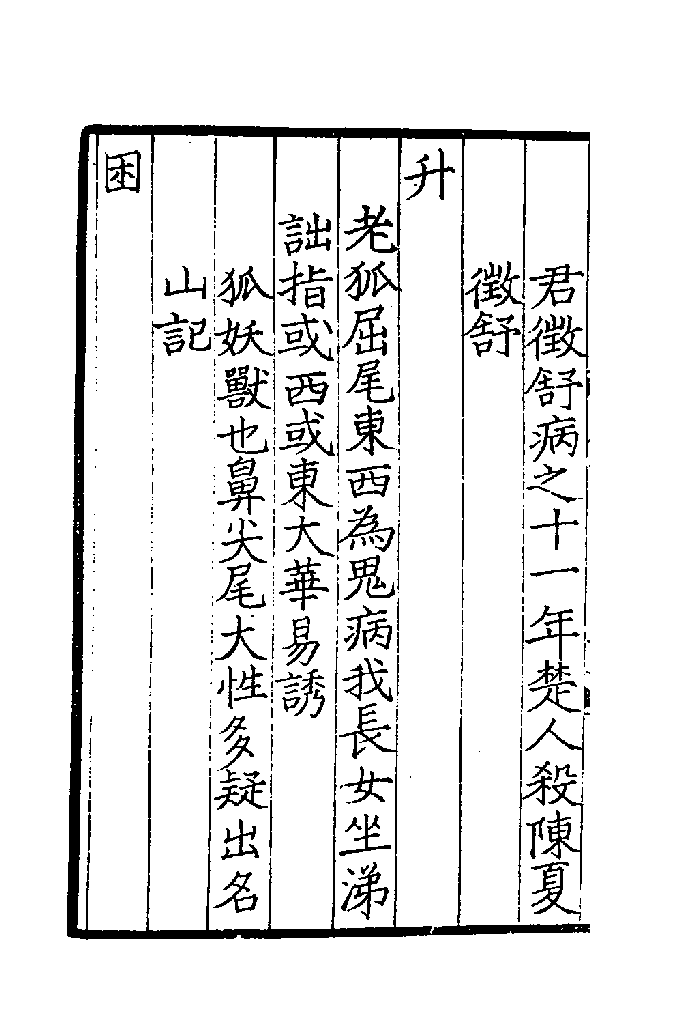 君徵舒病之十一年楚人殺陳夏
徵舒
升
老狐屈尾東西為鬼病我長女坐涕
詘指或西或東大華易誘
狐妖獸也鼻尖尾大性多疑出名
山記
困